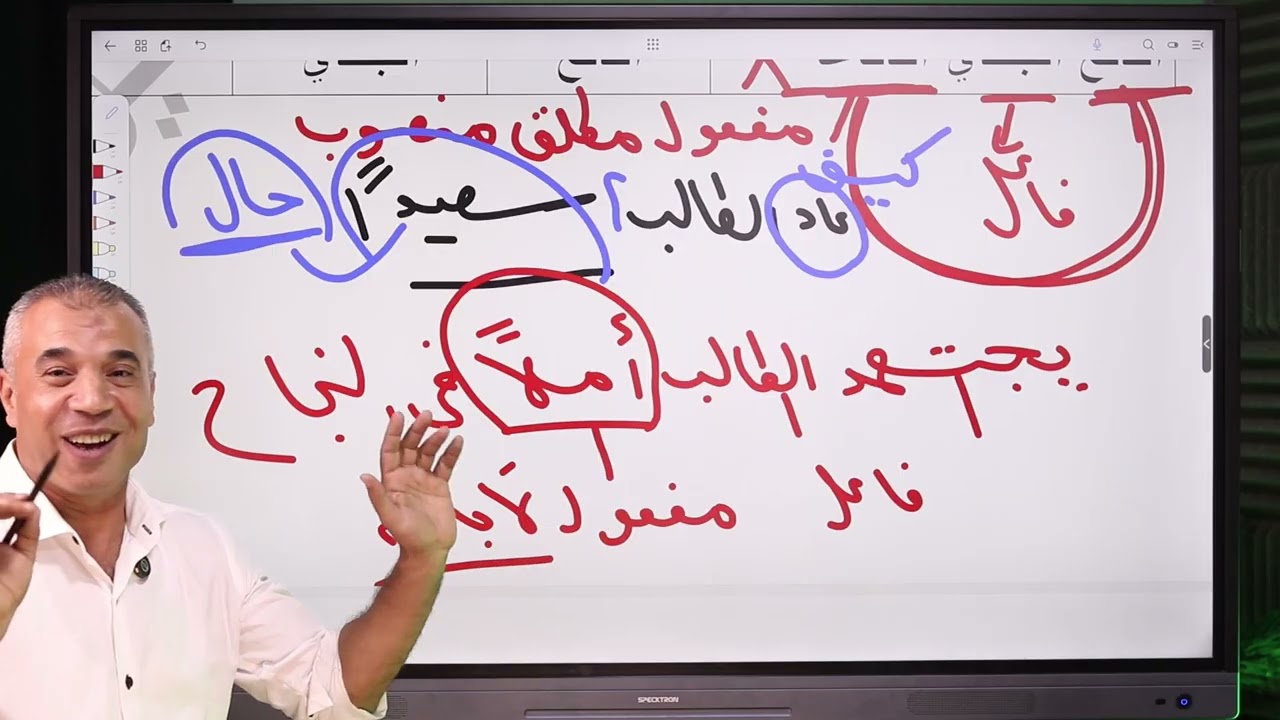 مفعول مطلق منصوب
فاعل
كيف
عاد الطالب سعيداً حال
يجتهد الطالب أملاً في لنجاح
فاعل مفعول لأجله
SPECKTRON